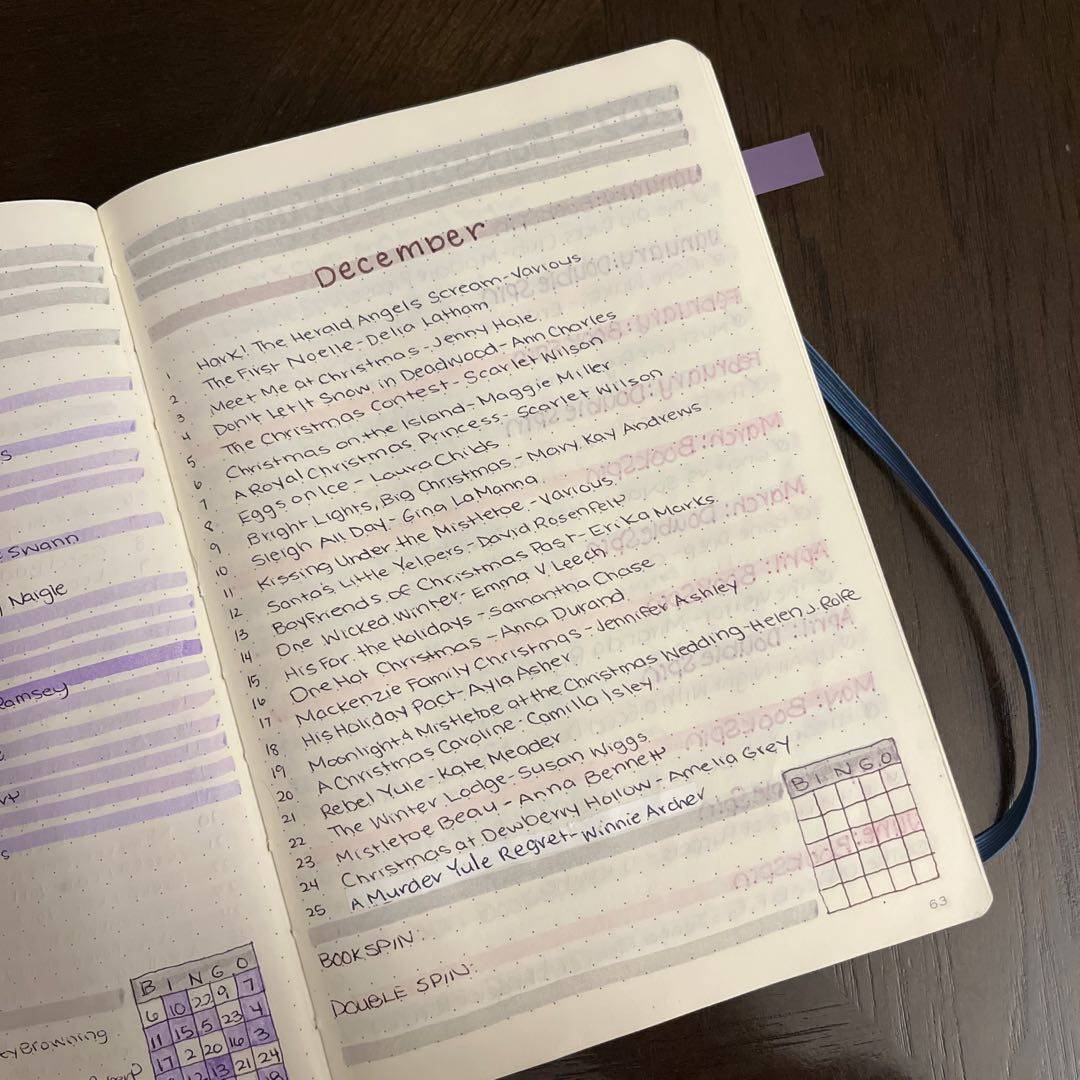 Swann
Naigle
Ramsey
Browning
B I N G O
6 10 22 9 7
11 15 5 23 4
17 2 20 16 3
13 21 24
December
Hark! The Herald Angels Scream - Various
2 The First Noelle - Delia Latham
3 Meet Me at Christmas - Jenny Hale
4 Don't Let It Snow in Deadwood - Ann Charles
5 The Christmas Contest - Scarlet Wilson
6 Christmas on the Island - Maggie Miller
7 A Royal Christmas Princess - Scarlet Wilson
8 Eggs on Ice - Laura Childs
9 Bright Lights, Big Christmas - Mary Kay Andrews
10 Sleigh All Day - Gina LaManna
11 Kissing Under the Mistletoe - Various
12 Santa's Little Yelpers - David Rosenfelt
13 Boyfriends of Christmas Past - Erika Marks
14 One Wicked Winter - Emma V Leech
15 His for the Holidays - Samantha Chase
16 One Hot Christmas - Anna Durand
17 Mackenzie Family Christmas - Jennifer Ashley
18 His Holiday Pact - Ayla Asher
19 Moonlight & Mistletoe at the Christmas Wedding - Helen J Rolfe
20 A Christmas Caroline - Camilla Isley
21 Rebel Yule - Kate Meader
22 The Winter Lodge - Susan Wiggs
23 Mistletoe Beau - Anna Bennett
24 Christmas at Dewberry Hollow - Amelia Grey
25 A Murder Yule Regret - Winnie Archer
BOOKSPIN:
DOUBLE SPIN:
B I N G O
63